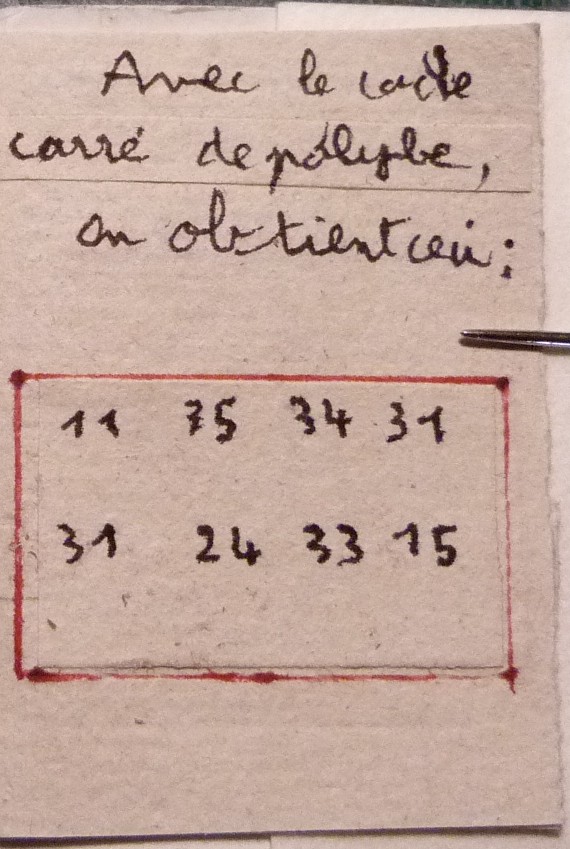 Avec le code
carré de pólybe,
on obtient ceci:
11 35 34 31
31 24 33 15